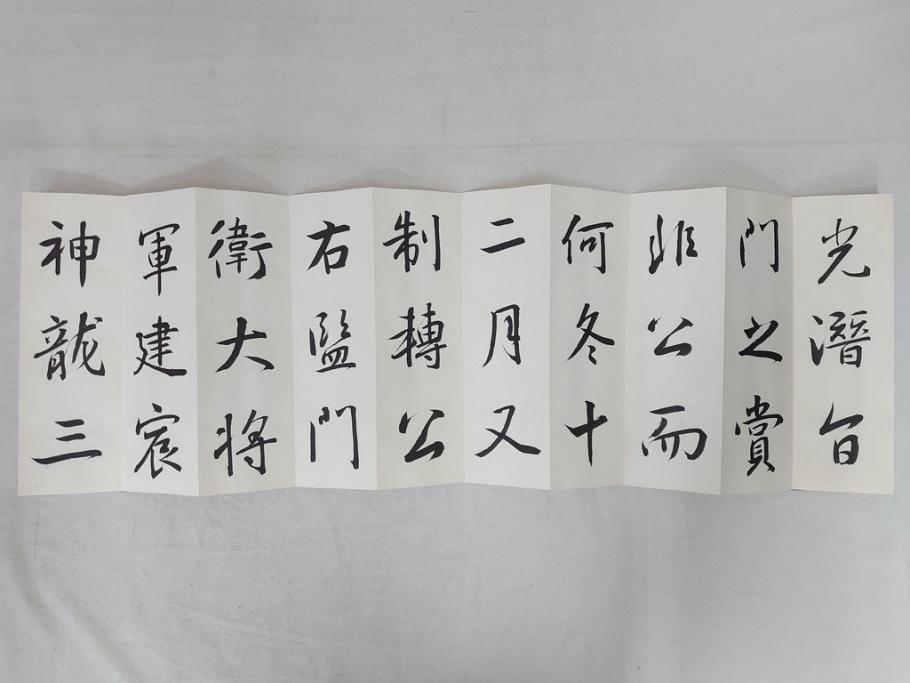 光潛㫖
門之賞
非公而
何冬十
二月又
制轉公
右監門
衛大将
軍建宸
神龍三